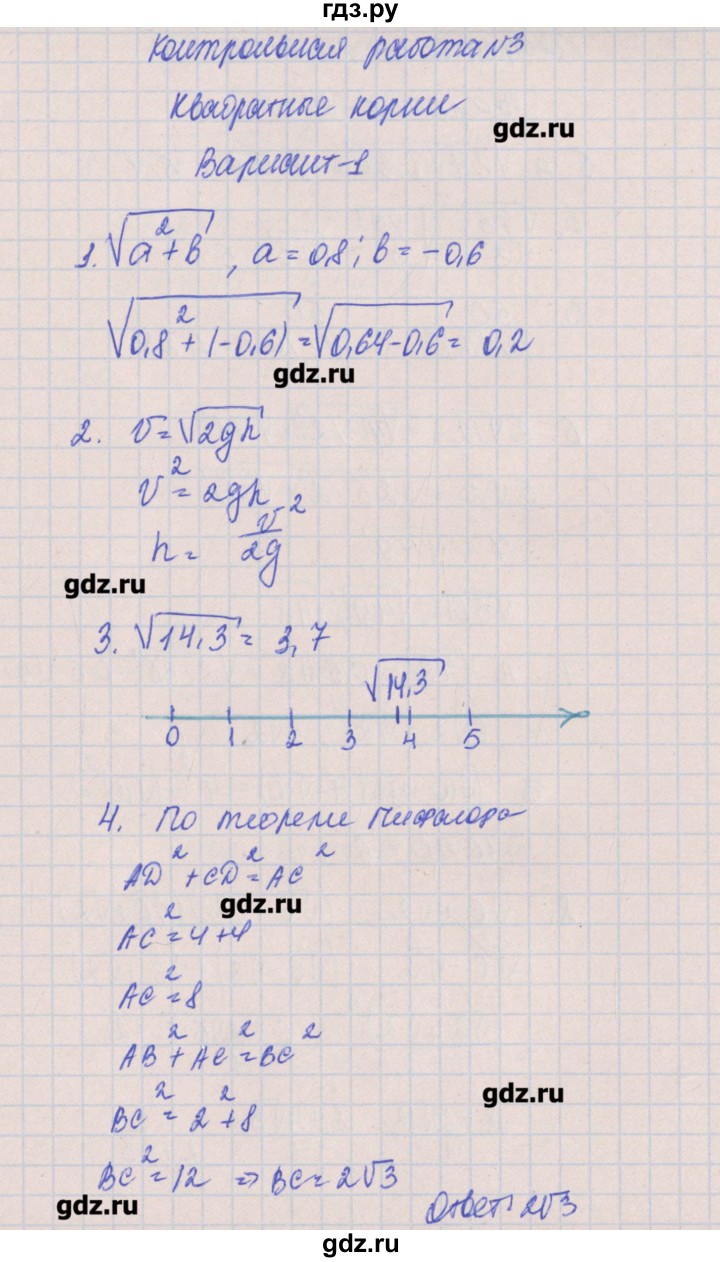 гдз.ру
Контрольная работа №3
Квадратные корни
gdz.ru
Вариант-1
1. √(a²+b) , a = 0,8 ; b = -0,6
√(0,8² + (-0,6)) = √(0,64-0,6) = 0,2
gdz.ru
2. v = √(2gh)
v² = 2gh
h = v²/2g
gdz.ru
3. √14,3 = 3,7
√14,3
0 1 2 3 4 5
4. По теореме Пифагора
AD² + CD² = AC²
gdz.ru
AC² = 4+4
AC² = 8
AB² + AC² = BC²
gdz.ru
BC² = 2² + 8
BC² = 12 ⇒ BC = 2√3
gdz.ru
Ответ: 2√3
gdz.ru